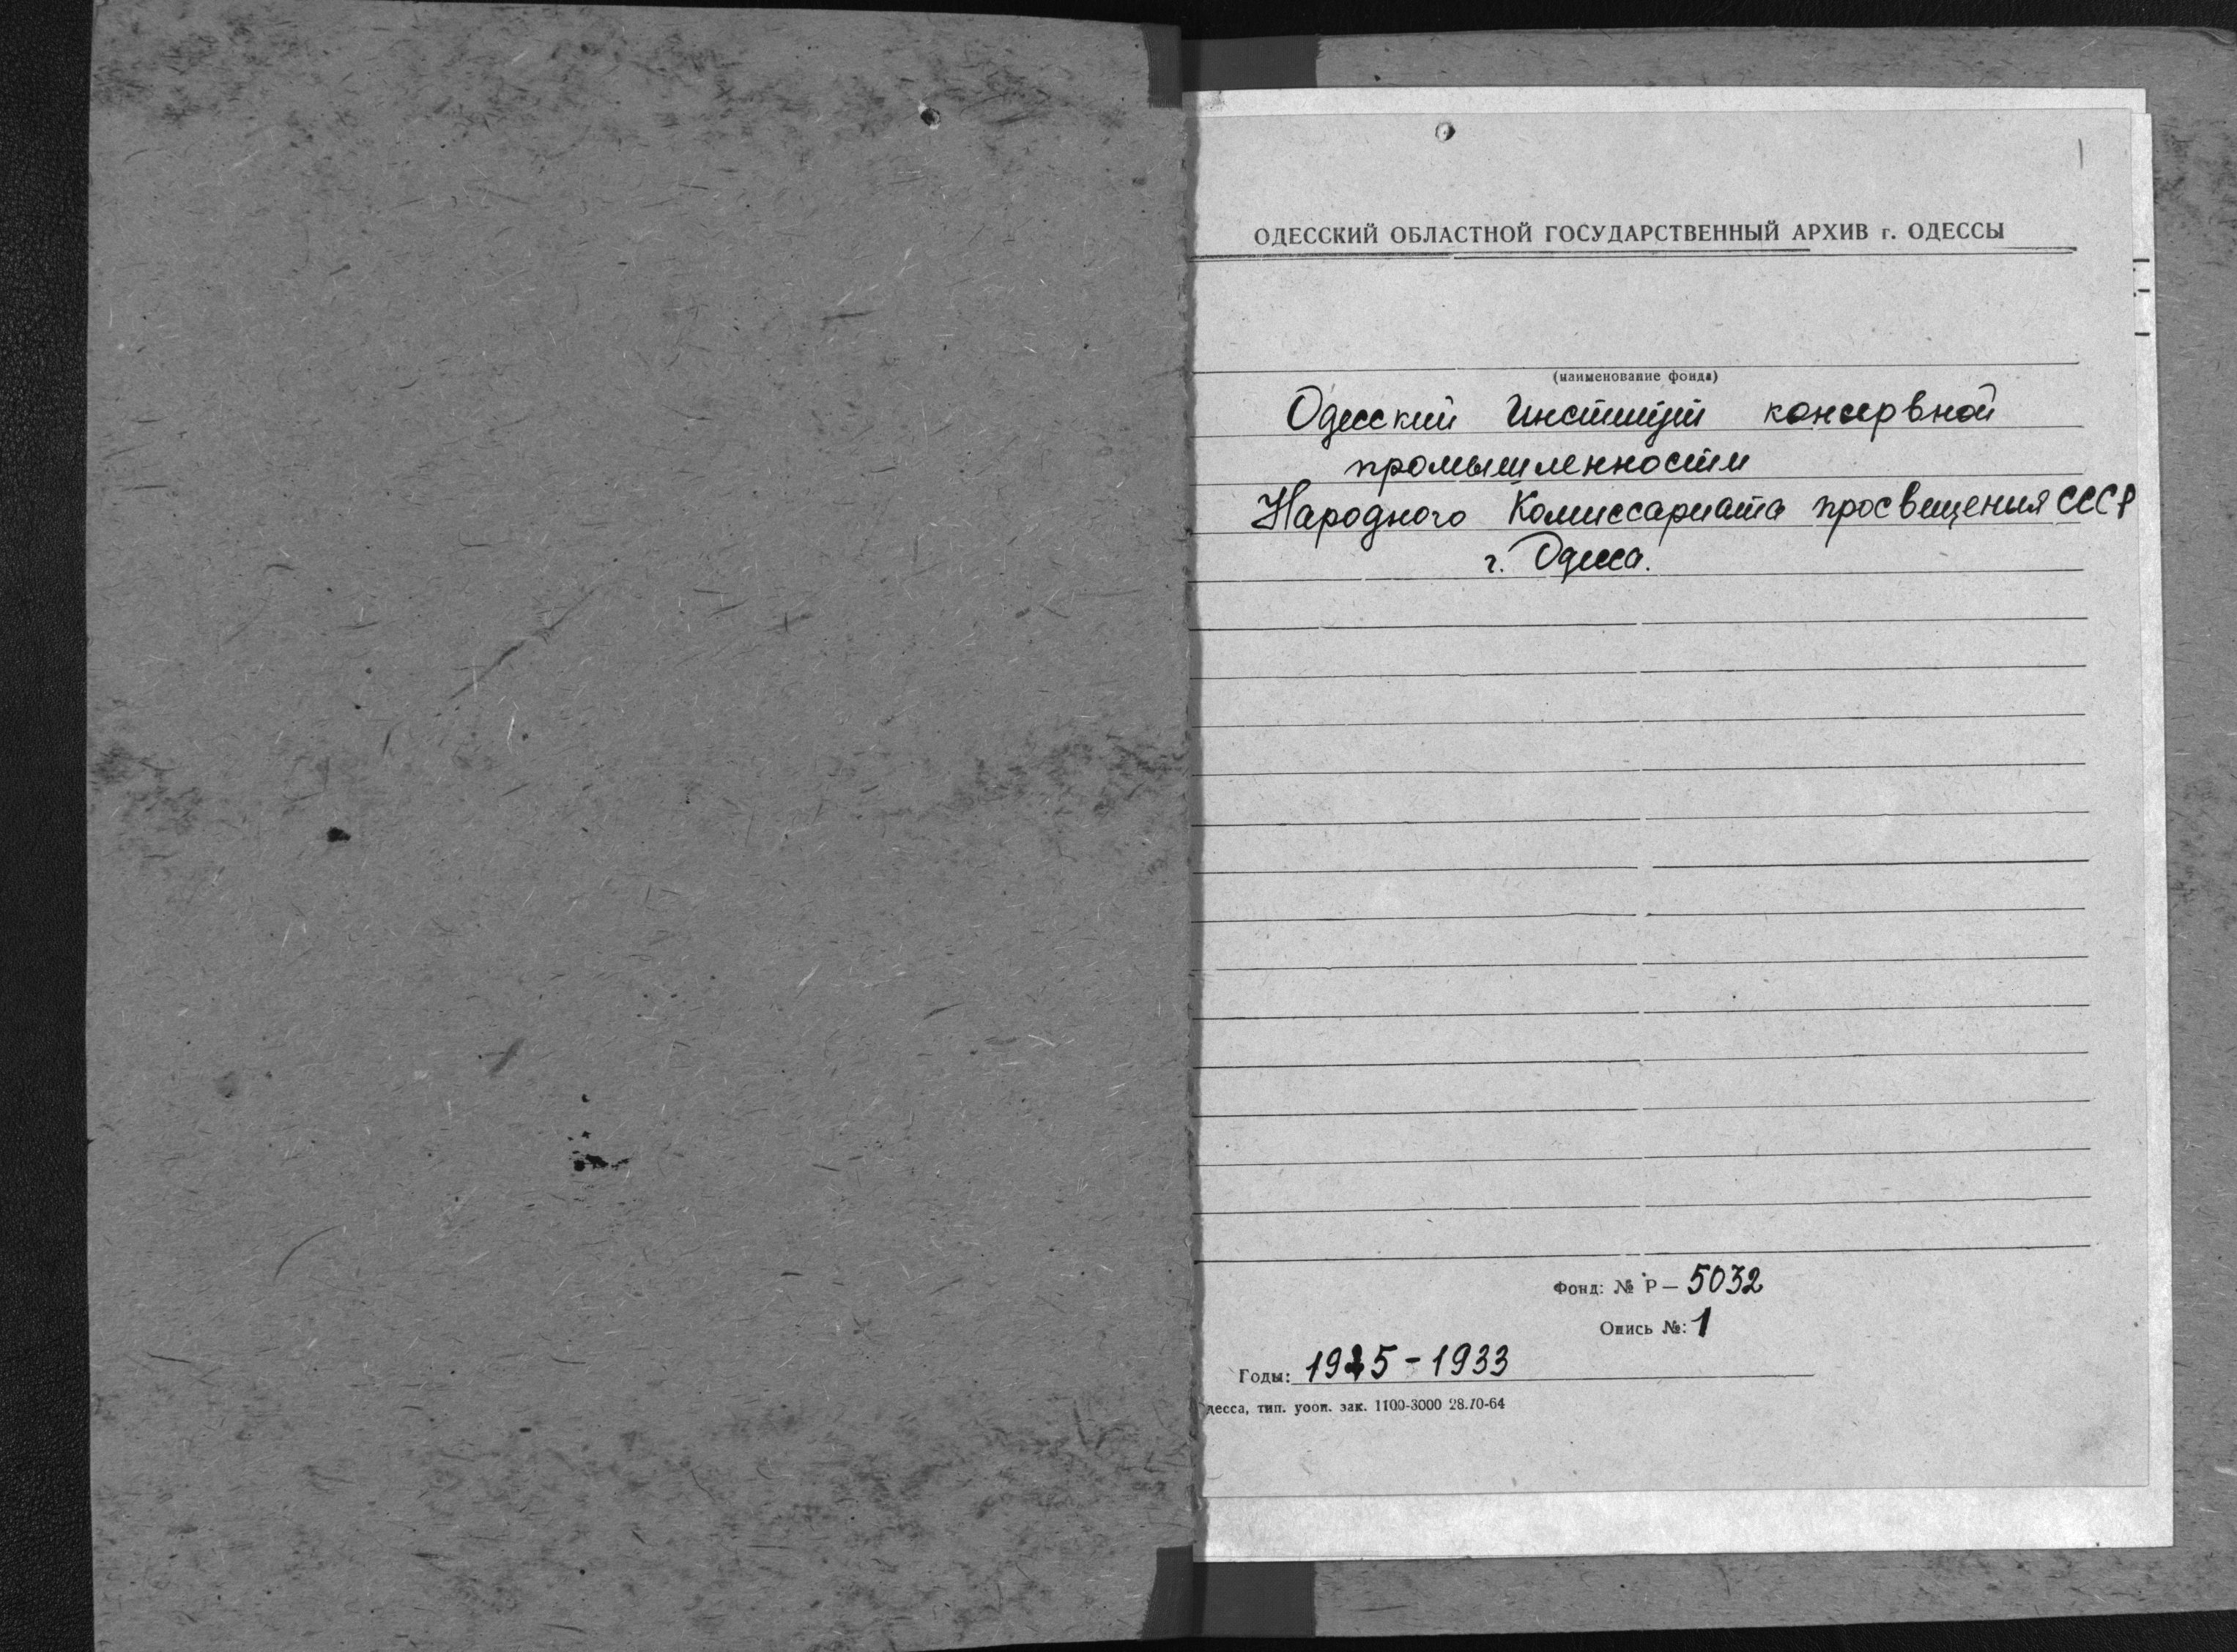 ОДЕССКИЙ ОБЛАСТНОЙ ГОСУДАРСТВЕННЫЙ АРХИВ г. ОДЕССЫ
(наименование фонда)
Одесский Институт консервной
промышленности
Народного Комиссариата просвещения СССР
г. Одесса.
Фонд: № Р — 5032
Опись №: 1
Годы: 1925-1933
десса, тип. уооп. зак. 1100-3000 28.10-64